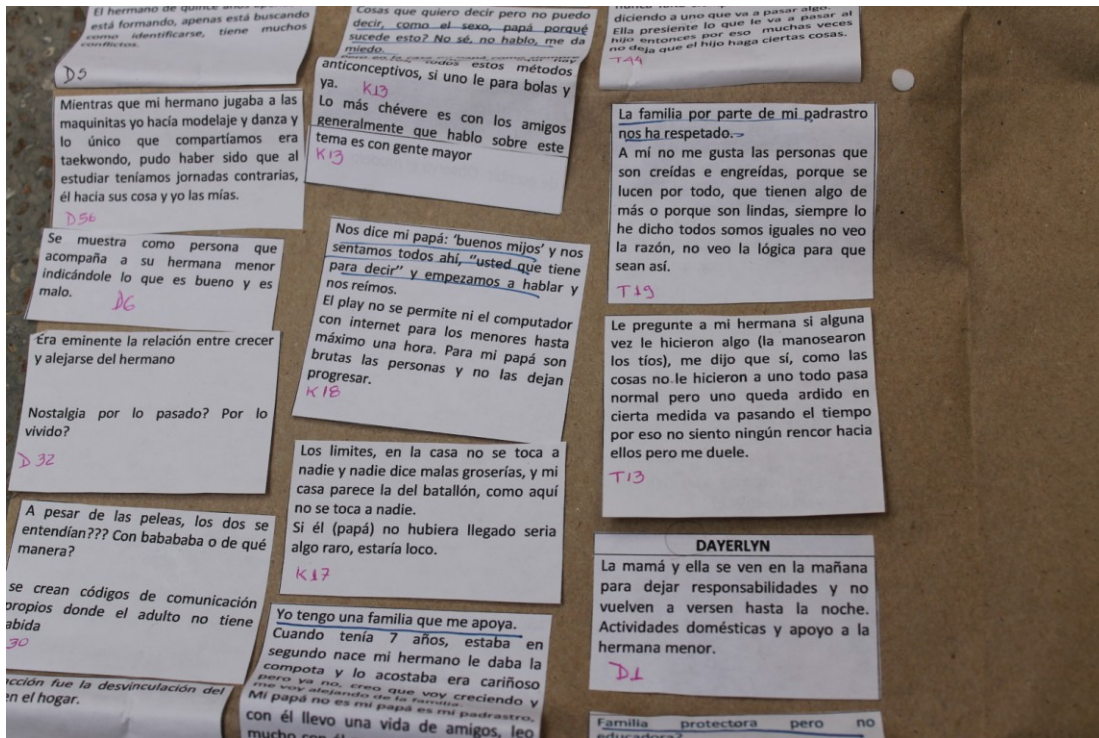 El hermano de quince años
está formando, apenas está buscando
como identificarse, tiene muchos
conflictos.
D5
Mientras que mi hermano jugaba a las
maquinitas yo hacía modelaje y danza y
lo único que compartíamos era
taekwondo, pudo haber sido que al
estudiar teníamos jornadas contrarias,
él hacia sus cosa y yo las mías.
D56
Se muestra como persona que
acompaña a su hermana menor
indicándole lo que es bueno y es
malo.
D6
Era eminente la relación entre crecer
y alejarse del hermano
Nostalgia por lo pasado? Por lo
vivido?
D 32
A pesar de las peleas, los dos se
entendían??? Con babababa o de qué
manera?
se crean códigos de comunicación
propios donde el adulto no tiene
abida
30
acción fue la desvinculación del
en el hogar.
Cosas que quiero decir pero no puedo
decir, como el sexo, papá porqué
sucede esto? No sé, no hablo, me da
miedo.
todos estos métodos
anticonceptivos, si uno le para bolas y
ya.
K13
Lo más chévere es con los amigos
generalmente que hablo sobre este
tema es con gente mayor
K13
Nos dice mi papá: ‘buenos mijos’ y nos
sentamos todos ahí, “usted que tiene
para decir” y empezamos a hablar y
nos reímos.
El play no se permite ni el computador
con internet para los menores hasta
máximo una hora. Para mi papá son
brutas las personas y no las dejan
progresar.
K18
Los limites, en la casa no se toca a
nadie y nadie dice malas groserías, y mi
casa parece la del batallón, como aquí
no se toca a nadie.
Si él (papá) no hubiera llegado seria
algo raro, estaría loco.
K17
Yo tengo una familia que me apoya.
Cuando tenía 7 años, estaba en
segundo nace mi hermano le daba la
compota y lo acostaba era cariñoso
pero ya no, creo que voy creciendo y
me voy alejando de la familia.
Mi papá no es mi papá es mi padrastro,
con él llevo una vida de amigos, leo
mucho con él
diciendo a uno que va a pasar algo.
Ella presiente lo que le va a pasar al
hijo entonces por eso muchas veces
no deja que el hijo haga ciertas cosas.
T44
La familia por parte de mi padrastro
nos ha respetado.
A mí no me gusta las personas que
son creídas e engreídas, porque se
lucen por todo, que tienen algo de
más o porque son lindas, siempre lo
he dicho todos somos iguales no veo
la razón, no veo la lógica para que
sean así.
T19
Le pregunte a mi hermana si alguna
vez le hicieron algo (la manosearon
los tíos), me dijo que sí, como las
cosas no le hicieron a uno todo pasa
normal pero uno queda ardido en
cierta medida va pasando el tiempo
por eso no siento ningún rencor hacia
ellos pero me duele.
T13
DAYERLYN
La mamá y ella se ven en la mañana
para dejar responsabilidades y no
vuelven a versen hasta la noche.
Actividades domésticas y apoyo a la
hermana menor.
D1
Familia protectora pero no
educadora?